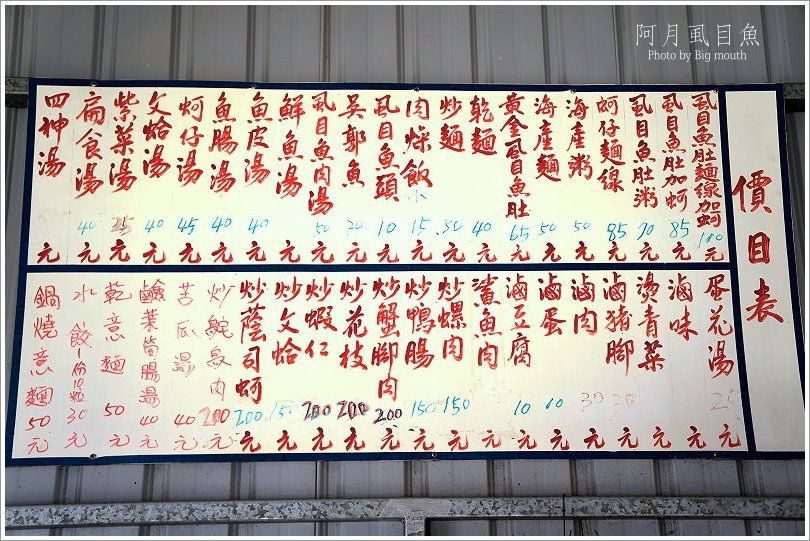 阿月虱目魚
Photo by Big mouth
價目表
虱目魚肚麵線加蚵100元
虱目魚肚加蚵85元
虱目魚肚粥70元
蚵仔麵線85元
海產粥50元
海產麵50元
黃金虱目魚肚65元
乾麵40元
炒麵50元
肉燥飯小15元
虱目魚頭10元
吳郭魚20元
虱目魚肉湯50元
鮮魚湯元
魚皮湯40元
魚腸湯40元
蚵仔湯45元
文蛤湯40元
紫菜湯25元
扁食湯40元
四神湯元
蛋花湯元
滷味元
燙青菜元
滷豬腳元
滷肉30元
滷蛋10元
滷豆腐10元
鯊魚肉元
炒螺肉150元
炒鴨腸150元
炒蟹腳肉200元
炒花枝200元
炒蝦仁200元
炒文蛤150元
炒蔭司蚵200元
炒魚肉200元
苦瓜湯40元
鹹菜筍腸湯40元
乾意麵50元
水餃1份10粒30元
鍋燒意麵50元